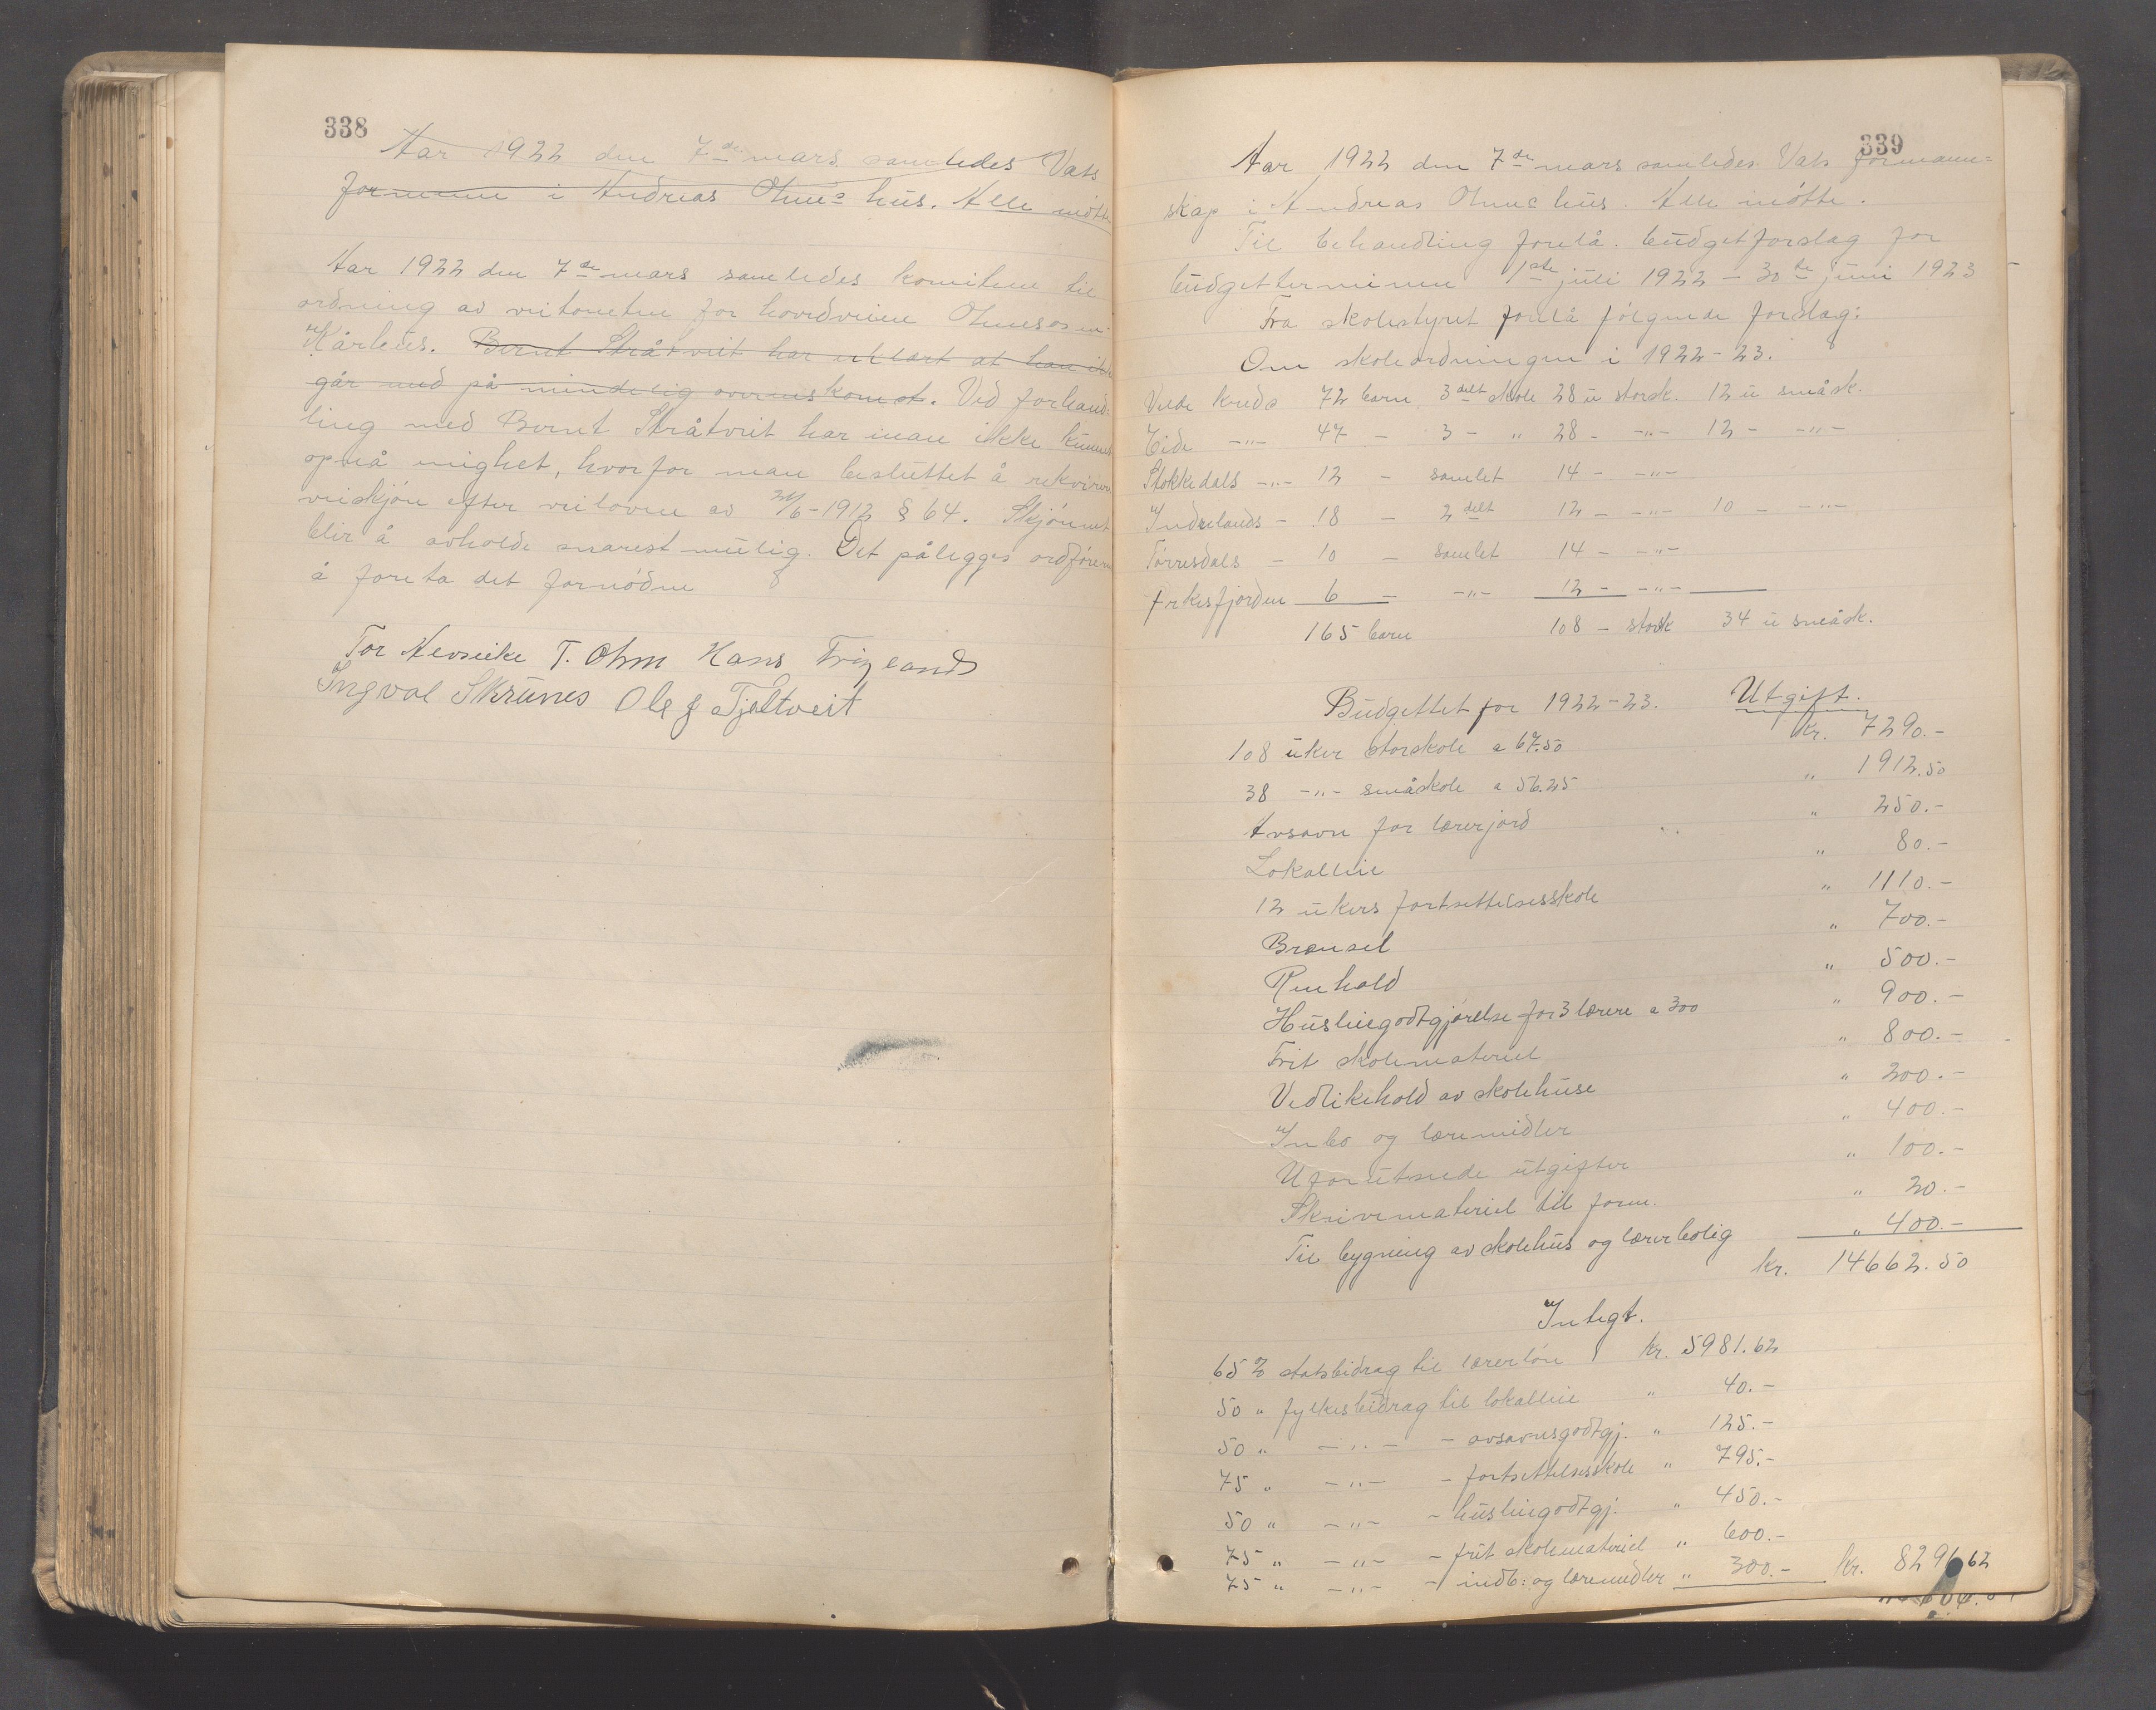 338
Aar 1922 den 7de mars samledes Vats
formenn i Andreas Ohmes hus. Alle møtte
Aar 1922 den 7de mars samledes komiteen til
ordning av veitomten for hovedveien
Kårhus. Bernt Stråtveit har erklært at han ikke
går med på mindelig overenskomst. Ved forhand-
ling med Bernt Stråtveit har man ikke kunnet
opnå enighet, hvorfor man besluttet å rekvirere
veiskjøn efter veiloven av 21/6-1912 § 64. Skjønnet
blir å avholde snarest mulig. Det pålegges ordføreren
å foreta det fornødne
Tor T. Ohm Hans
Ingval Skrunes Ole J Tjeltveit
339
Aar 1922 den 7de mars samledes Vats formann=
skap i Andreas Ohmes hus. Alle møtte.
Til behandling forelå budgetforslag for
budgetterminen 1ste juli 1922 - 30te juni 1923
Fra skolestyret forelå følgende forslag:
Om skoleordningen i 1922-23.
Velde kreds 72 barn 3delt skole 28 u storsk. 12 u småsk.
Eide -"- 47 - 3 - " 28 - -"- 12 - -"-
Stokkedals -"- 12 - samlet 14 - -"-
Indrelands - 18 - 2delt 12 - -"- 10 - -"-
Tørresdals - 10 - samlet 14 - -"-
Ørkesfjorden 6 - -"- 12 - -"-
165 barn 108 - storsk 34 u småsk.
Budgettet for 1922-23. Utgift.
108 uker storskole a 67.50 kr. 7290.-
38 -"- småskole a 56.25 " 1912.50
Avsavn for lærerjord " 250.-
Lokalleie " 80.-
12 ukers fortsettelsesskole " 1110.-
Brænsel " 700.-
Renhold " 500.-
Husleiegodtgjørelse for 3 lærere a 300 " 900.-
Frit skolemateriel " 800.-
Vedlikehold av skolehuse " 200.-
Inbo og læremidler " 400.-
Uforutseede utgifter " 100.-
Skrivemateriel til form. " 20.-
Til bygning av skolehus og lærerbolig " 400.-
kr. 14662.50
Integt.
65 % statsbidrag til lærerløn kr. 5981.62
50 " fylkesbidrag til lokalleie " 40.-
50 " -"- - avsavnsgodtgj. " 125.-
75 " -"- - fortsettelsesskole " 795.-
50 " -"- - husleiegodtgj. " 450.-
75 " -"- - frit skolemateriel " 600.-
75 " -"- - indb: og læremidler " 300.- kr. 8291.62